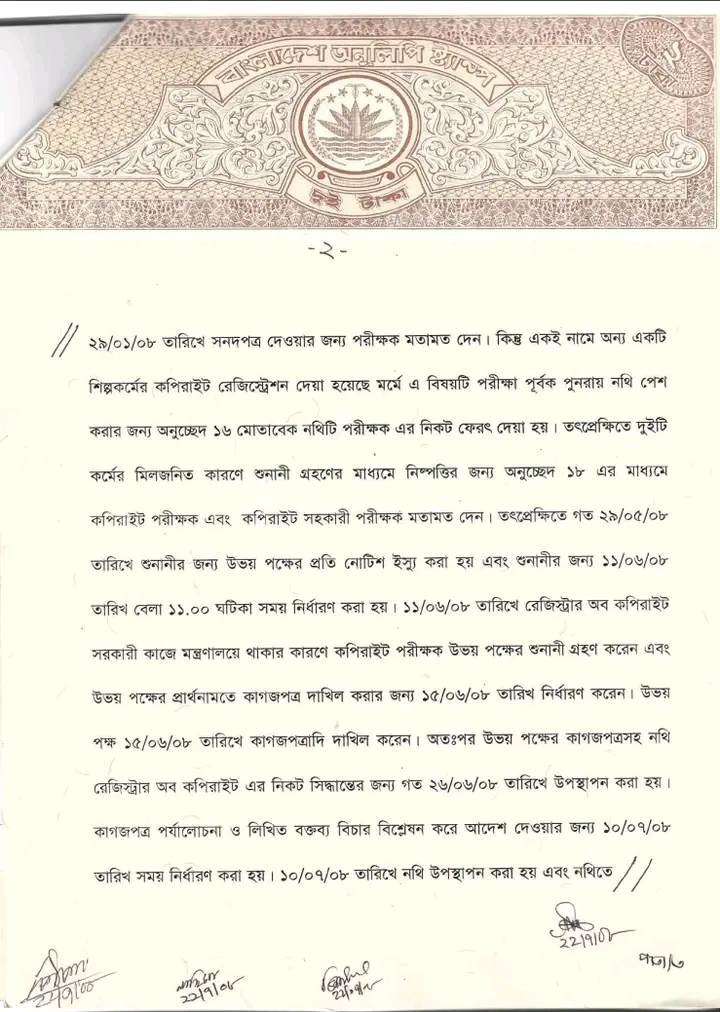 বাংলাদেশ অনুলিপি ষ্ট্যাম্প
২
টাকা
দুই টাকা
-২-
// ২৯/০১/০৮ তারিখে সনদপত্র দেওয়ার জন্য পরীক্ষক মতামত দেন। কিন্তু একই নামে অন্য একটি
শিল্পকর্মের কপিরাইট রেজিস্ট্রেশন দেয়া হয়েছে মর্মে এ বিষয়টি পরীক্ষা পূর্বক পুনরায় নথি পেশ
করার জন্য অনুচ্ছেদ ১৬ মোতাবেক নথিটি পরীক্ষক এর নিকট ফেরৎ দেয়া হয়। তৎপ্রেক্ষিতে দুইটি
কর্মের মিলজনিত কারণে শুনানী গ্রহণের মাধ্যমে নিষ্পত্তির জন্য অনুচ্ছেদ ১৮ এর মাধ্যমে
কপিরাইট পরীক্ষক এবং কপিরাইট সহকারী পরীক্ষক মতামত দেন। তৎপ্রেক্ষিতে গত ২৯/০৫/০৮
তারিখে শুনানীর জন্য উভয় পক্ষের প্রতি নোটিশ ইস্যু করা হয় এবং শুনানীর জন্য ১১/০৬/০৮
তারিখ বেলা ১১.০০ ঘটিকা সময় নির্ধারণ করা হয়। ১১/০৬/০৮ তারিখে রেজিস্ট্রার অব কপিরাইট
সরকারী কাজে মন্ত্রণালয়ে থাকার কারণে কপিরাইট পরীক্ষক উভয় পক্ষের শুনানী গ্রহণ করেন এবং
উভয় পক্ষের প্রার্থনামতে কাগজপত্র দাখিল করার জন্য ১৫/০৬/০৮ তারিখ নির্ধারণ করেন। উভয়
পক্ষ ১৫/০৬/০৮ তারিখে কাগজপত্রাদি দাখিল করেন। অতঃপর উভয় পক্ষের কাগজপত্রসহ নথি
রেজিস্ট্রার অব কপিরাইট এর নিকট সিদ্ধান্তের জন্য গত ২৬/০৬/০৮ তারিখে উপস্থাপন করা হয়।
কাগজপত্র পর্যালোচনা ও লিখিত বক্তব্য বিচার বিশ্লেষন করে আদেশ দেওয়ার জন্য ১০/০৭/০৮
তারিখ সময় নির্ধারণ করা হয়। ১০/০৭/০৮ তারিখে নথি উপস্থাপন করা হয় এবং নথিতে //
২২/৭/০৮
২২/৭/০৮